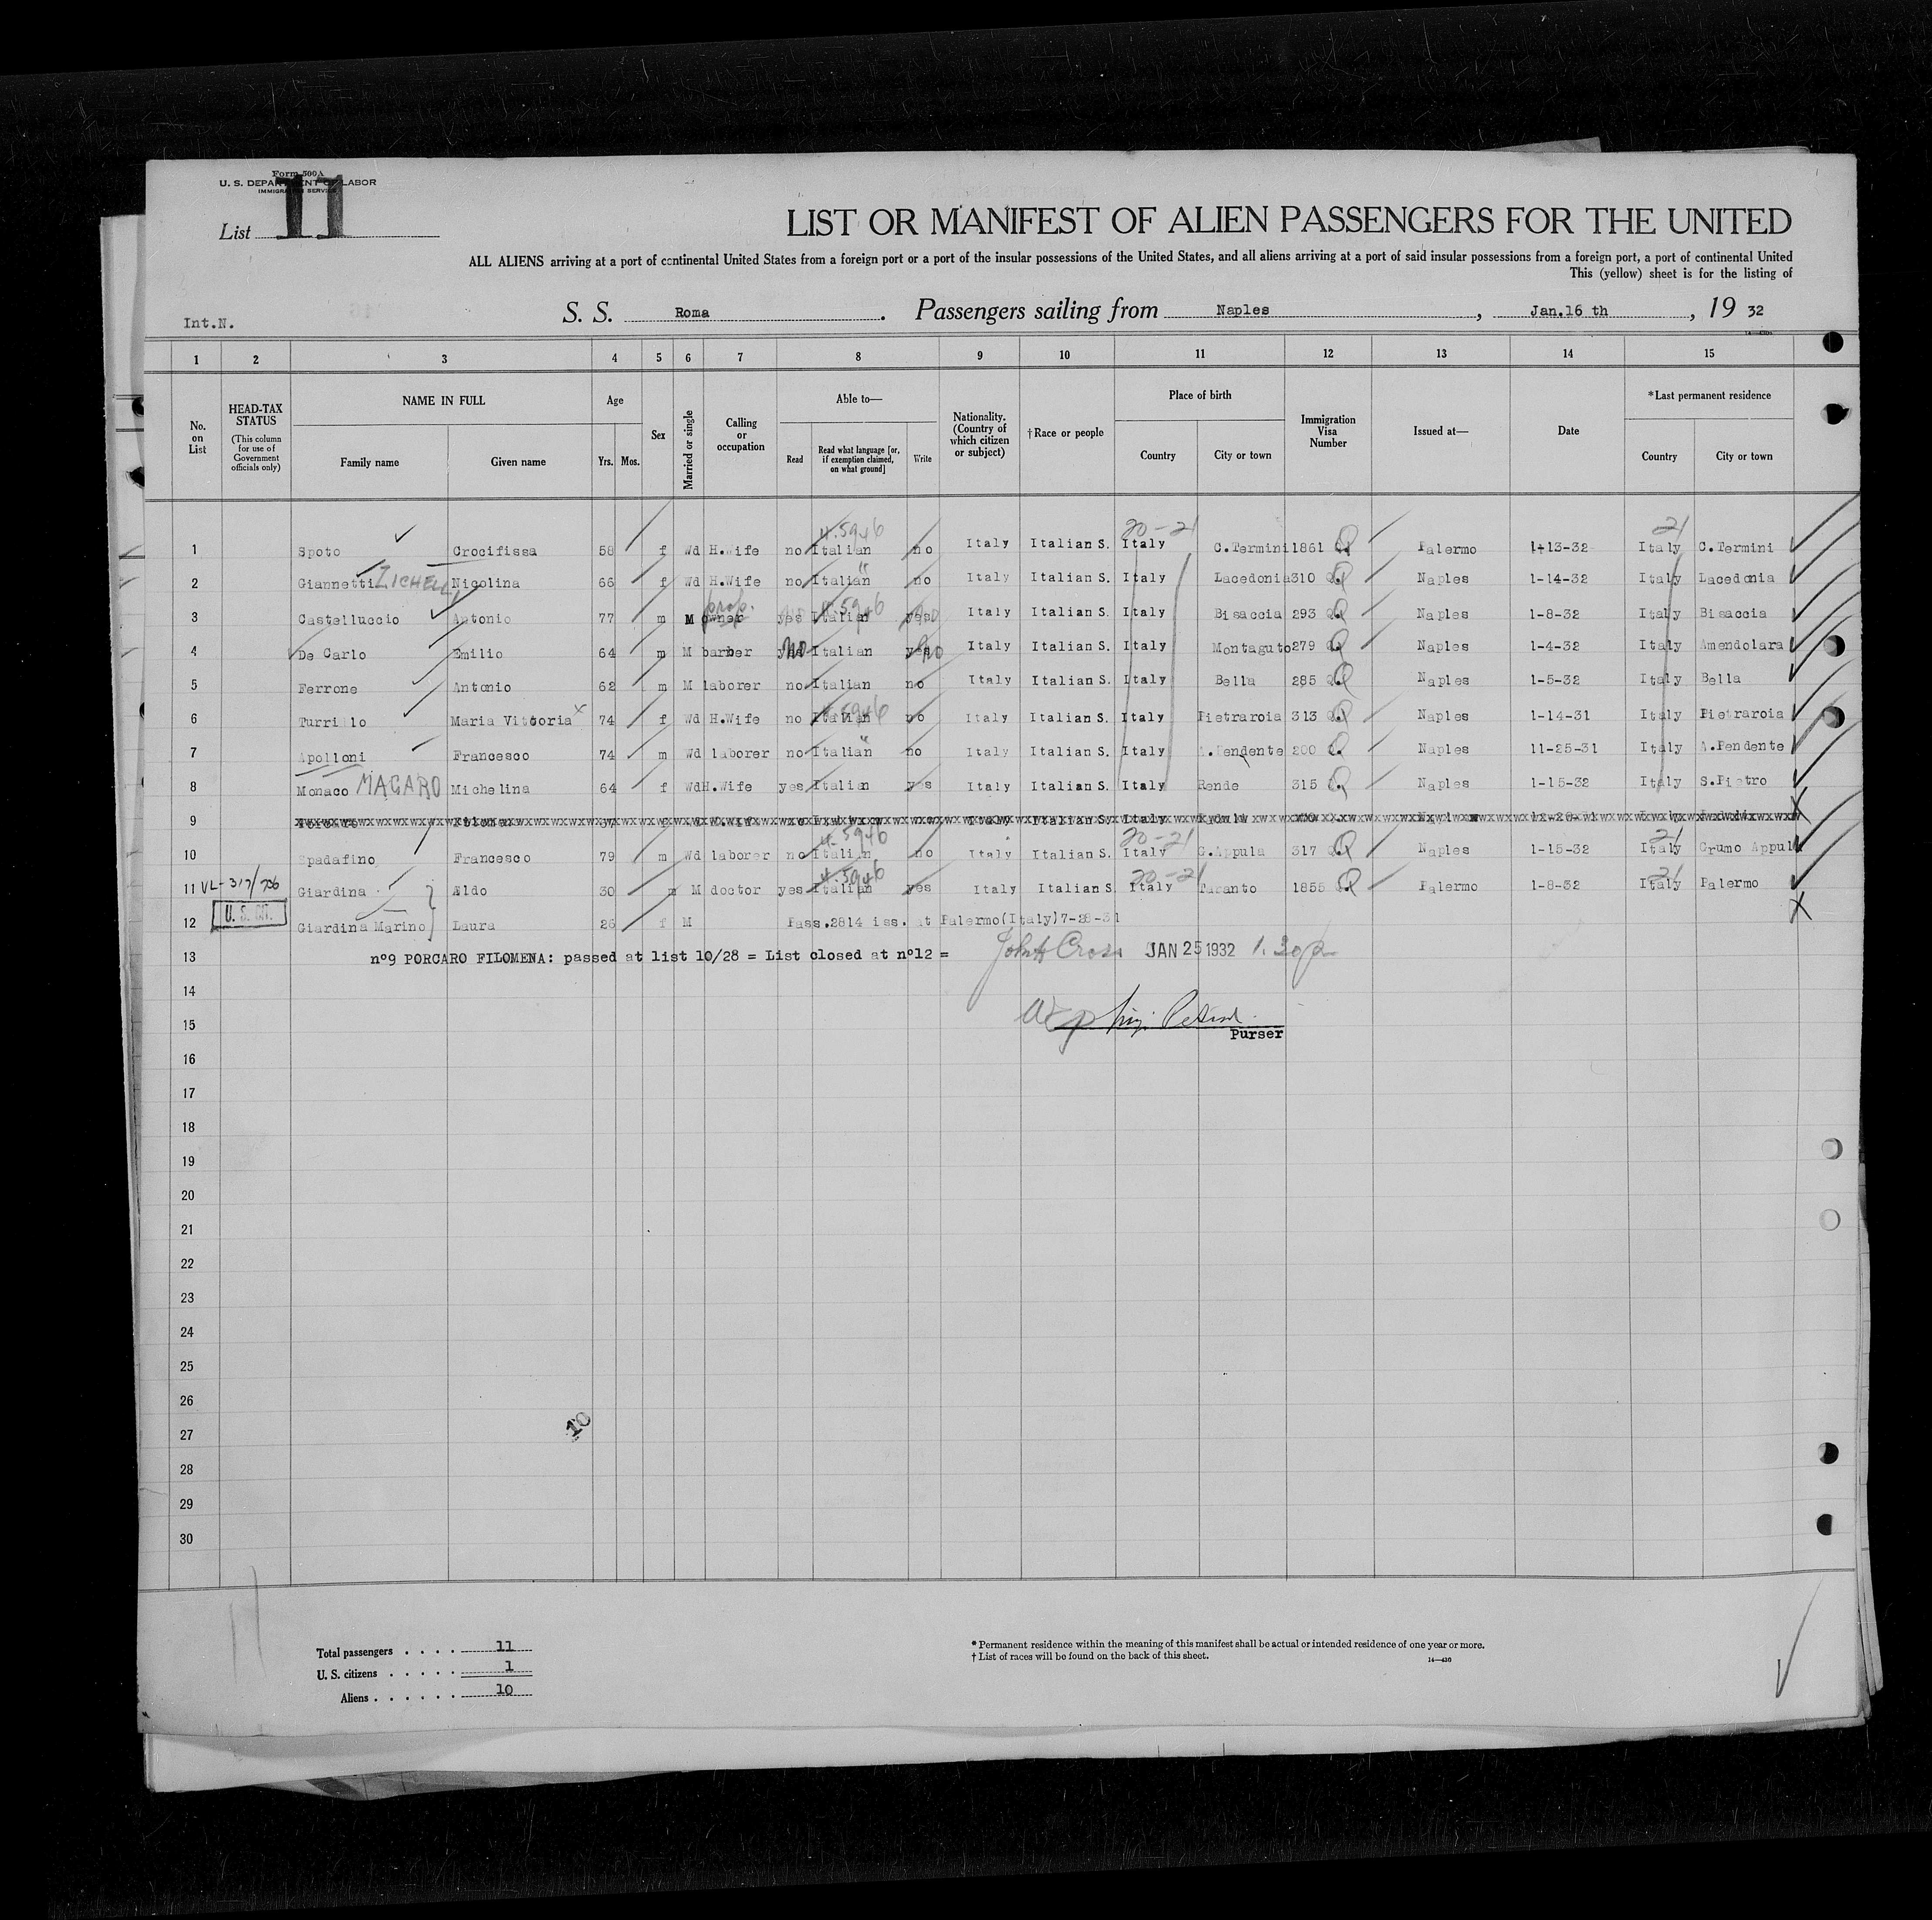 Form 500A
U. S. DEPARTMENT OF LABOR
IMMIGRATION SERVICE
List 11
LIST OR MANIFEST OF ALIEN PASSENGERS FOR THE UNITED
ALL ALIENS arriving at a port of continental United States from a foreign port or a port of the insular possessions of the United States, and all aliens arriving at a port of said insular possessions from a foreign port, a port of continental United
This (yellow) sheet is for the listing of
Int.N. S. S. Roma . Passengers sailing from Naples , Jan.16 th , 19 32
1 2 3 4 5 6 7 8 9 10 11 12 13 14 15
No. on List
HEAD-TAX STATUS (This column for use of Government officials only)
NAME IN FULL Family name Given name
Age Yrs. Mos.
Sex
Married or single
Calling or occupation
Able to— Read Read what language [or, if exemption claimed, on what ground] Write
Nationality. (Country of which citizen or subject)
†Race or people
Place of birth Country City or town
Immigration Visa Number
Issued at—
Date
*Last permanent residence Country City or town
4.5946 20-21 21
1 Spoto Crocifissa 58 f Wd H.Wife no Italian no Italy Italian S. Italy C.Termini 1861 Q Palermo 1-13-32 Italy C.Termini
2 Giannetti ZICHELLI Nicolina 66 f Wd H.Wife no Italian " no Italy Italian S. Italy Lacedonia 310 Q Naples 1-14-32 Italy Lacedonia
prop. 4.5946
3 Castelluccio Antonio 77 m M owner yes no Italian yes no Italy Italian S. Italy Bisaccia 293 Q Naples 1-8-32 Italy Bisaccia
4 De Carlo Emilio 64 m M barber yes no Italian yes no Italy Italian S. Italy Montaguto 279 Q Naples 1-4-32 Italy Amendolara
5 Ferrone Antonio 62 m M laborer no Italian no Italy Italian S. Italy Bella 285 Q Naples 1-5-32 Italy Bella
4.5946
6 Turrillo Maria Vittoria x 74 f Wd H.Wife no Italian no Italy Italian S. Italy Pietraroia 313 Q Naples 1-14-31 Italy Pietraroia
7 Apolloni Francesco 74 m Wd laborer no Italian " no Italy Italian S. Italy A.Pendente 200 Q Naples 11-25-31 Italy A.Pendente
8 Monaco MAGARO Michelina 64 f Wd H.Wife yes Italian yes Italy Italian S. Italy Rende 315 Q Naples 1-15-32 Italy S.Pietro
9 Italian S. Italy
4.5946 20-21 21
10 Spadafino Francesco 79 m Wd laborer no Italian no Italy Italian S. Italy G.Appula 317 Q Naples 1-15-32 Italy Grumo Appula
4.5946 20-21 21
11 VL-317/736 Giardina Aldo 30 m M doctor yes Italian yes Italy Italian S. Italy Taranto 1855 Q Palermo 1-8-32 Italy Palermo
12 U. S. CIT. Giardina Marino Laura 26 f M Pass.2814 iss. at Palermo(Italy)7-28-31 X
13 nº9 PORCARO FILOMENA: passed at list 10/28 = List closed at nº12 = John H Cross JAN 25 1932 1.30p
14
15
Purser
16
17
18
19
20
21
22
23
24
25
26
27
10
28
29
30
Total passengers . . . . 11
U. S. citizens . . . . . 1
Aliens . . . . . . 10
* Permanent residence within the meaning of this manifest shall be actual or intended residence of one year or more.
† List of races will be found on the back of this sheet.
14—430